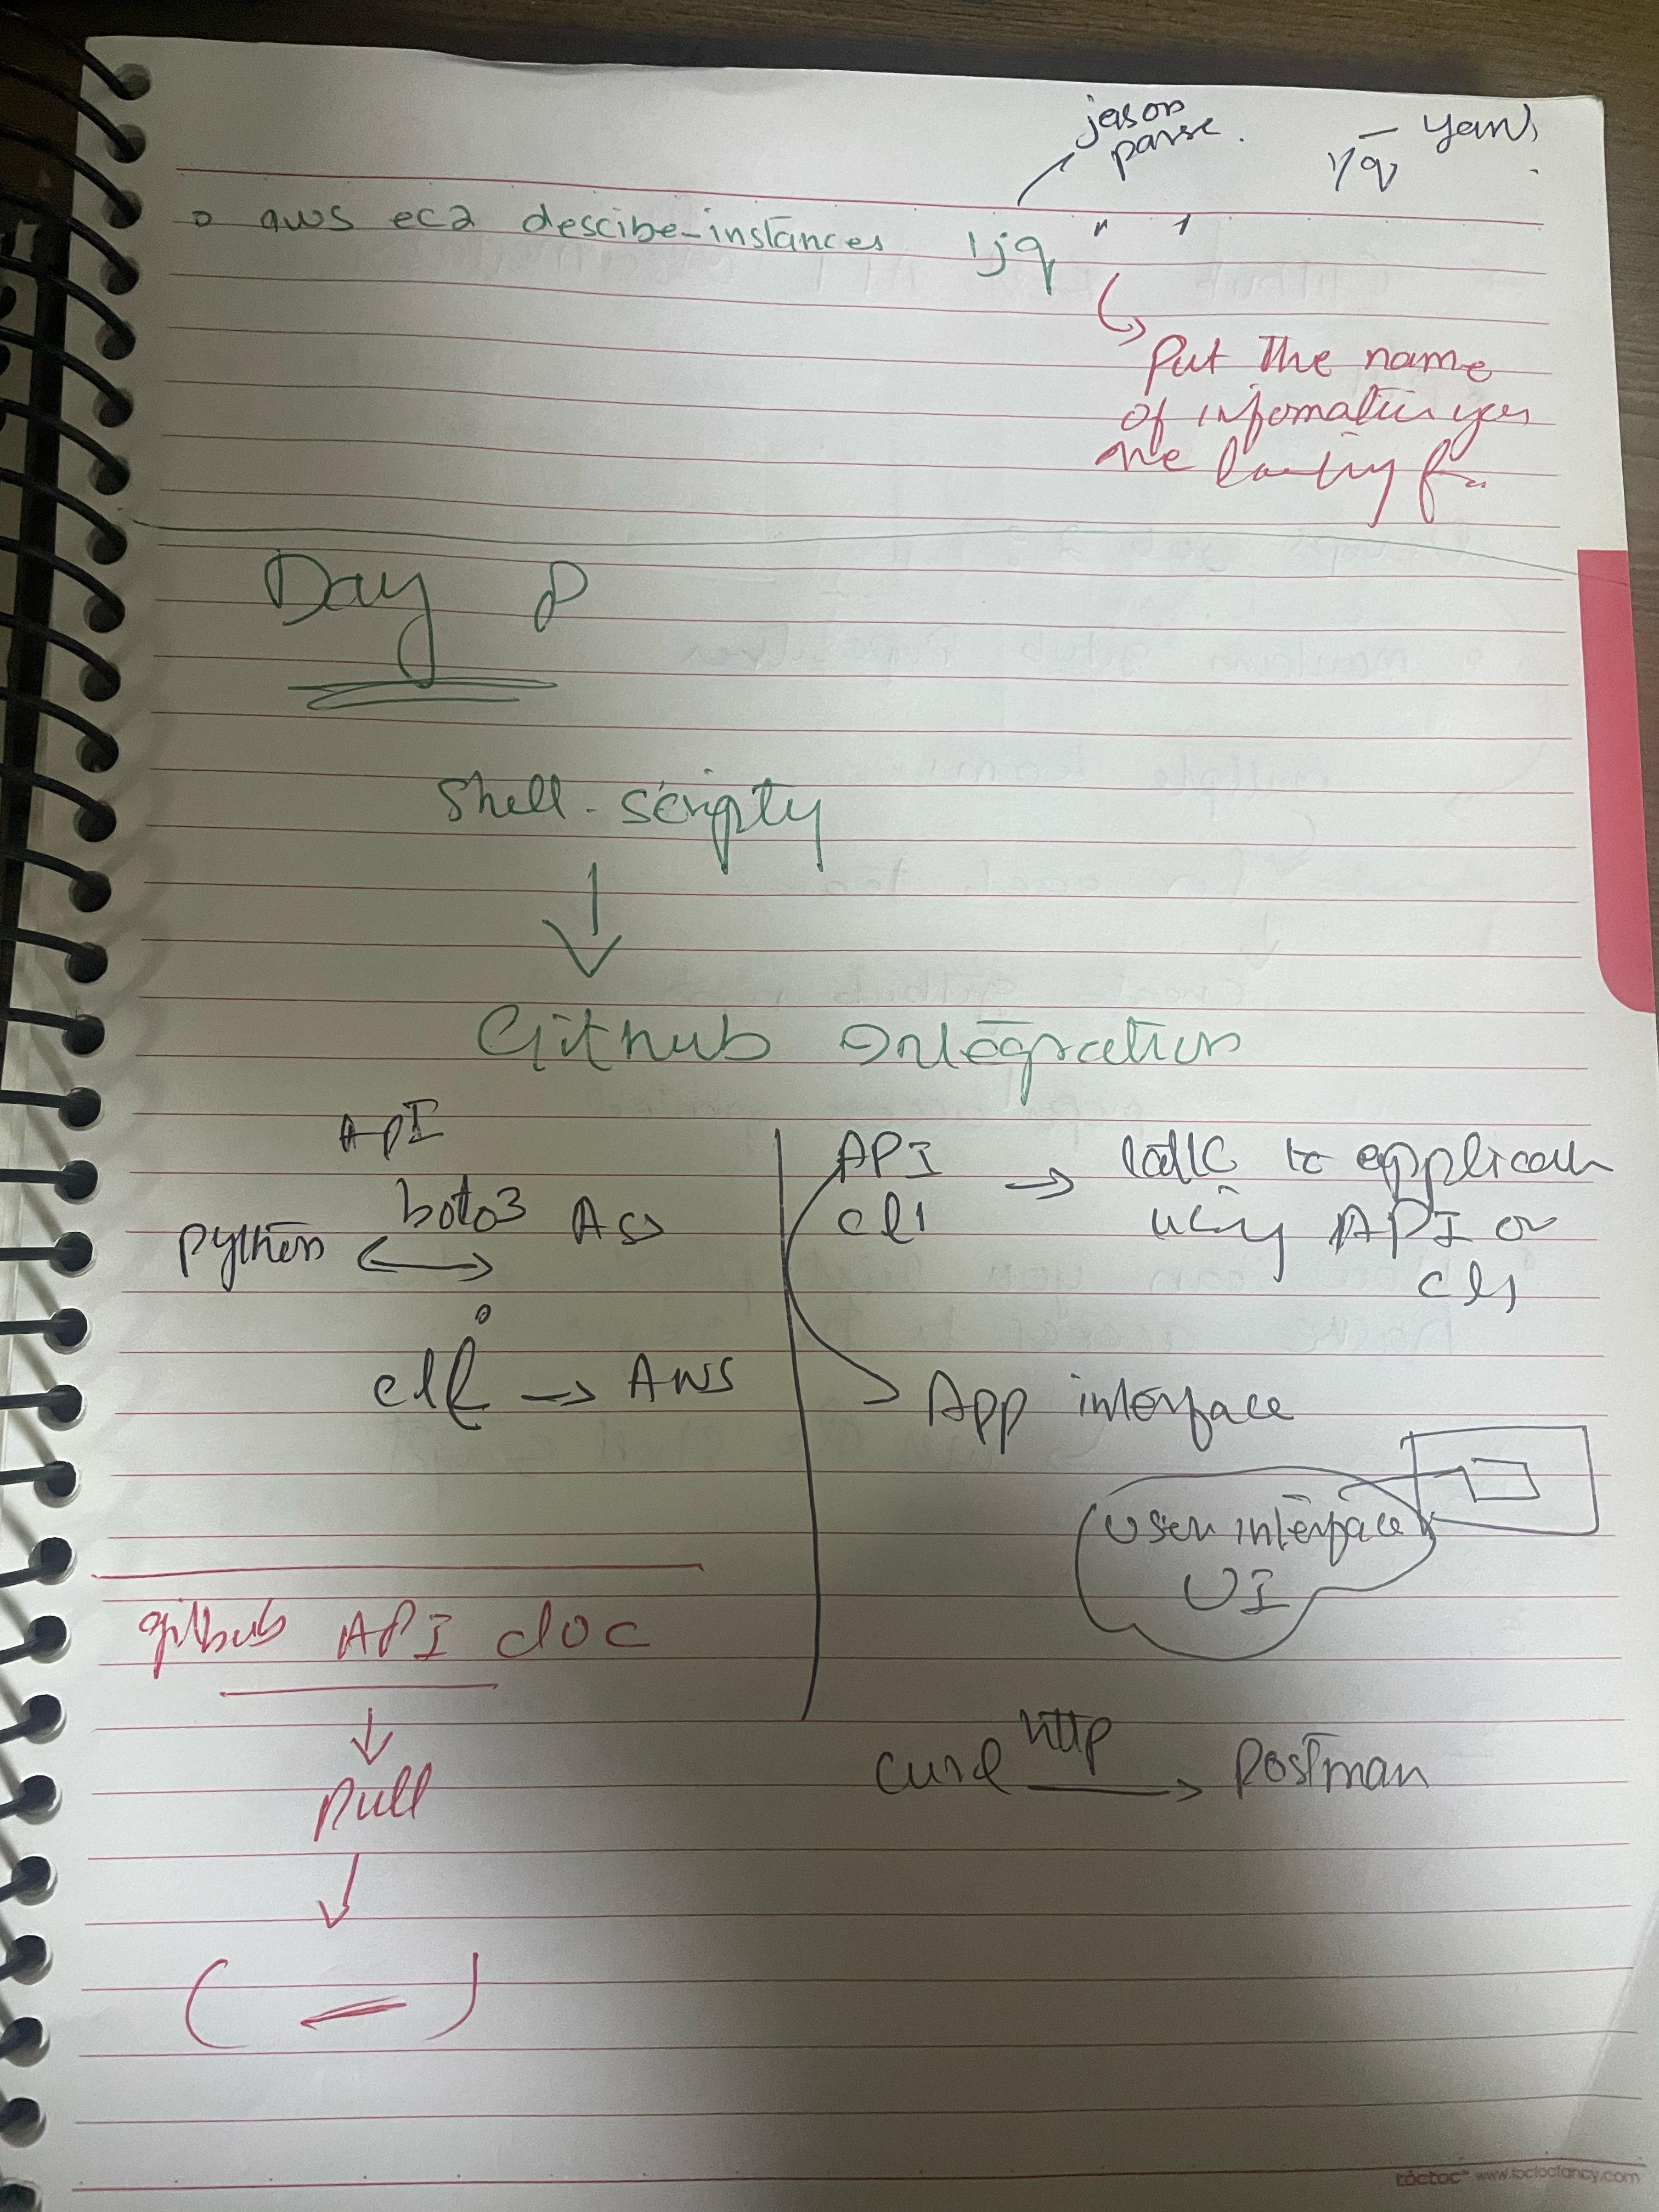 jason
parse.
yq — yaml
aws ec2 descibe-instances | jq " '
Put the name
of infomation you
are looking for
Day 8
Shell-scripting
Github Integration
API
boto3
python AWS
cli → AWS
API → talk to application
cli using API or
cli
App interface
User interface
UI
github API doc
pull
curl http → Postman
toctoc www.toctocfancy.com